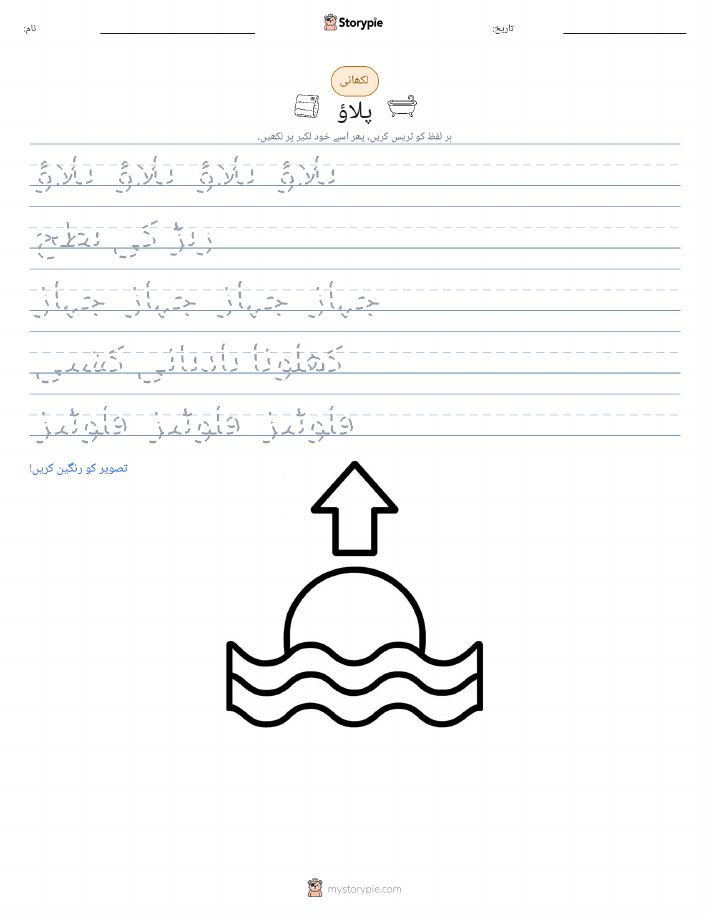 نام:
Storypie
تاریخ:
لکھائی
پلاؤ
ہر لفظ کو ٹریس کریں، پھر اسے خود لکیر پر لکھیں۔
پلاؤ پلاؤ پلاؤ پلاؤ
ربڑ کی بطخ
جہاز جہاز جہاز جہاز
کھلونا بادبانی کشتی
فلوٹیز فلوٹیز فلوٹیز
تصویر کو رنگین کریں!
mystorypie.com